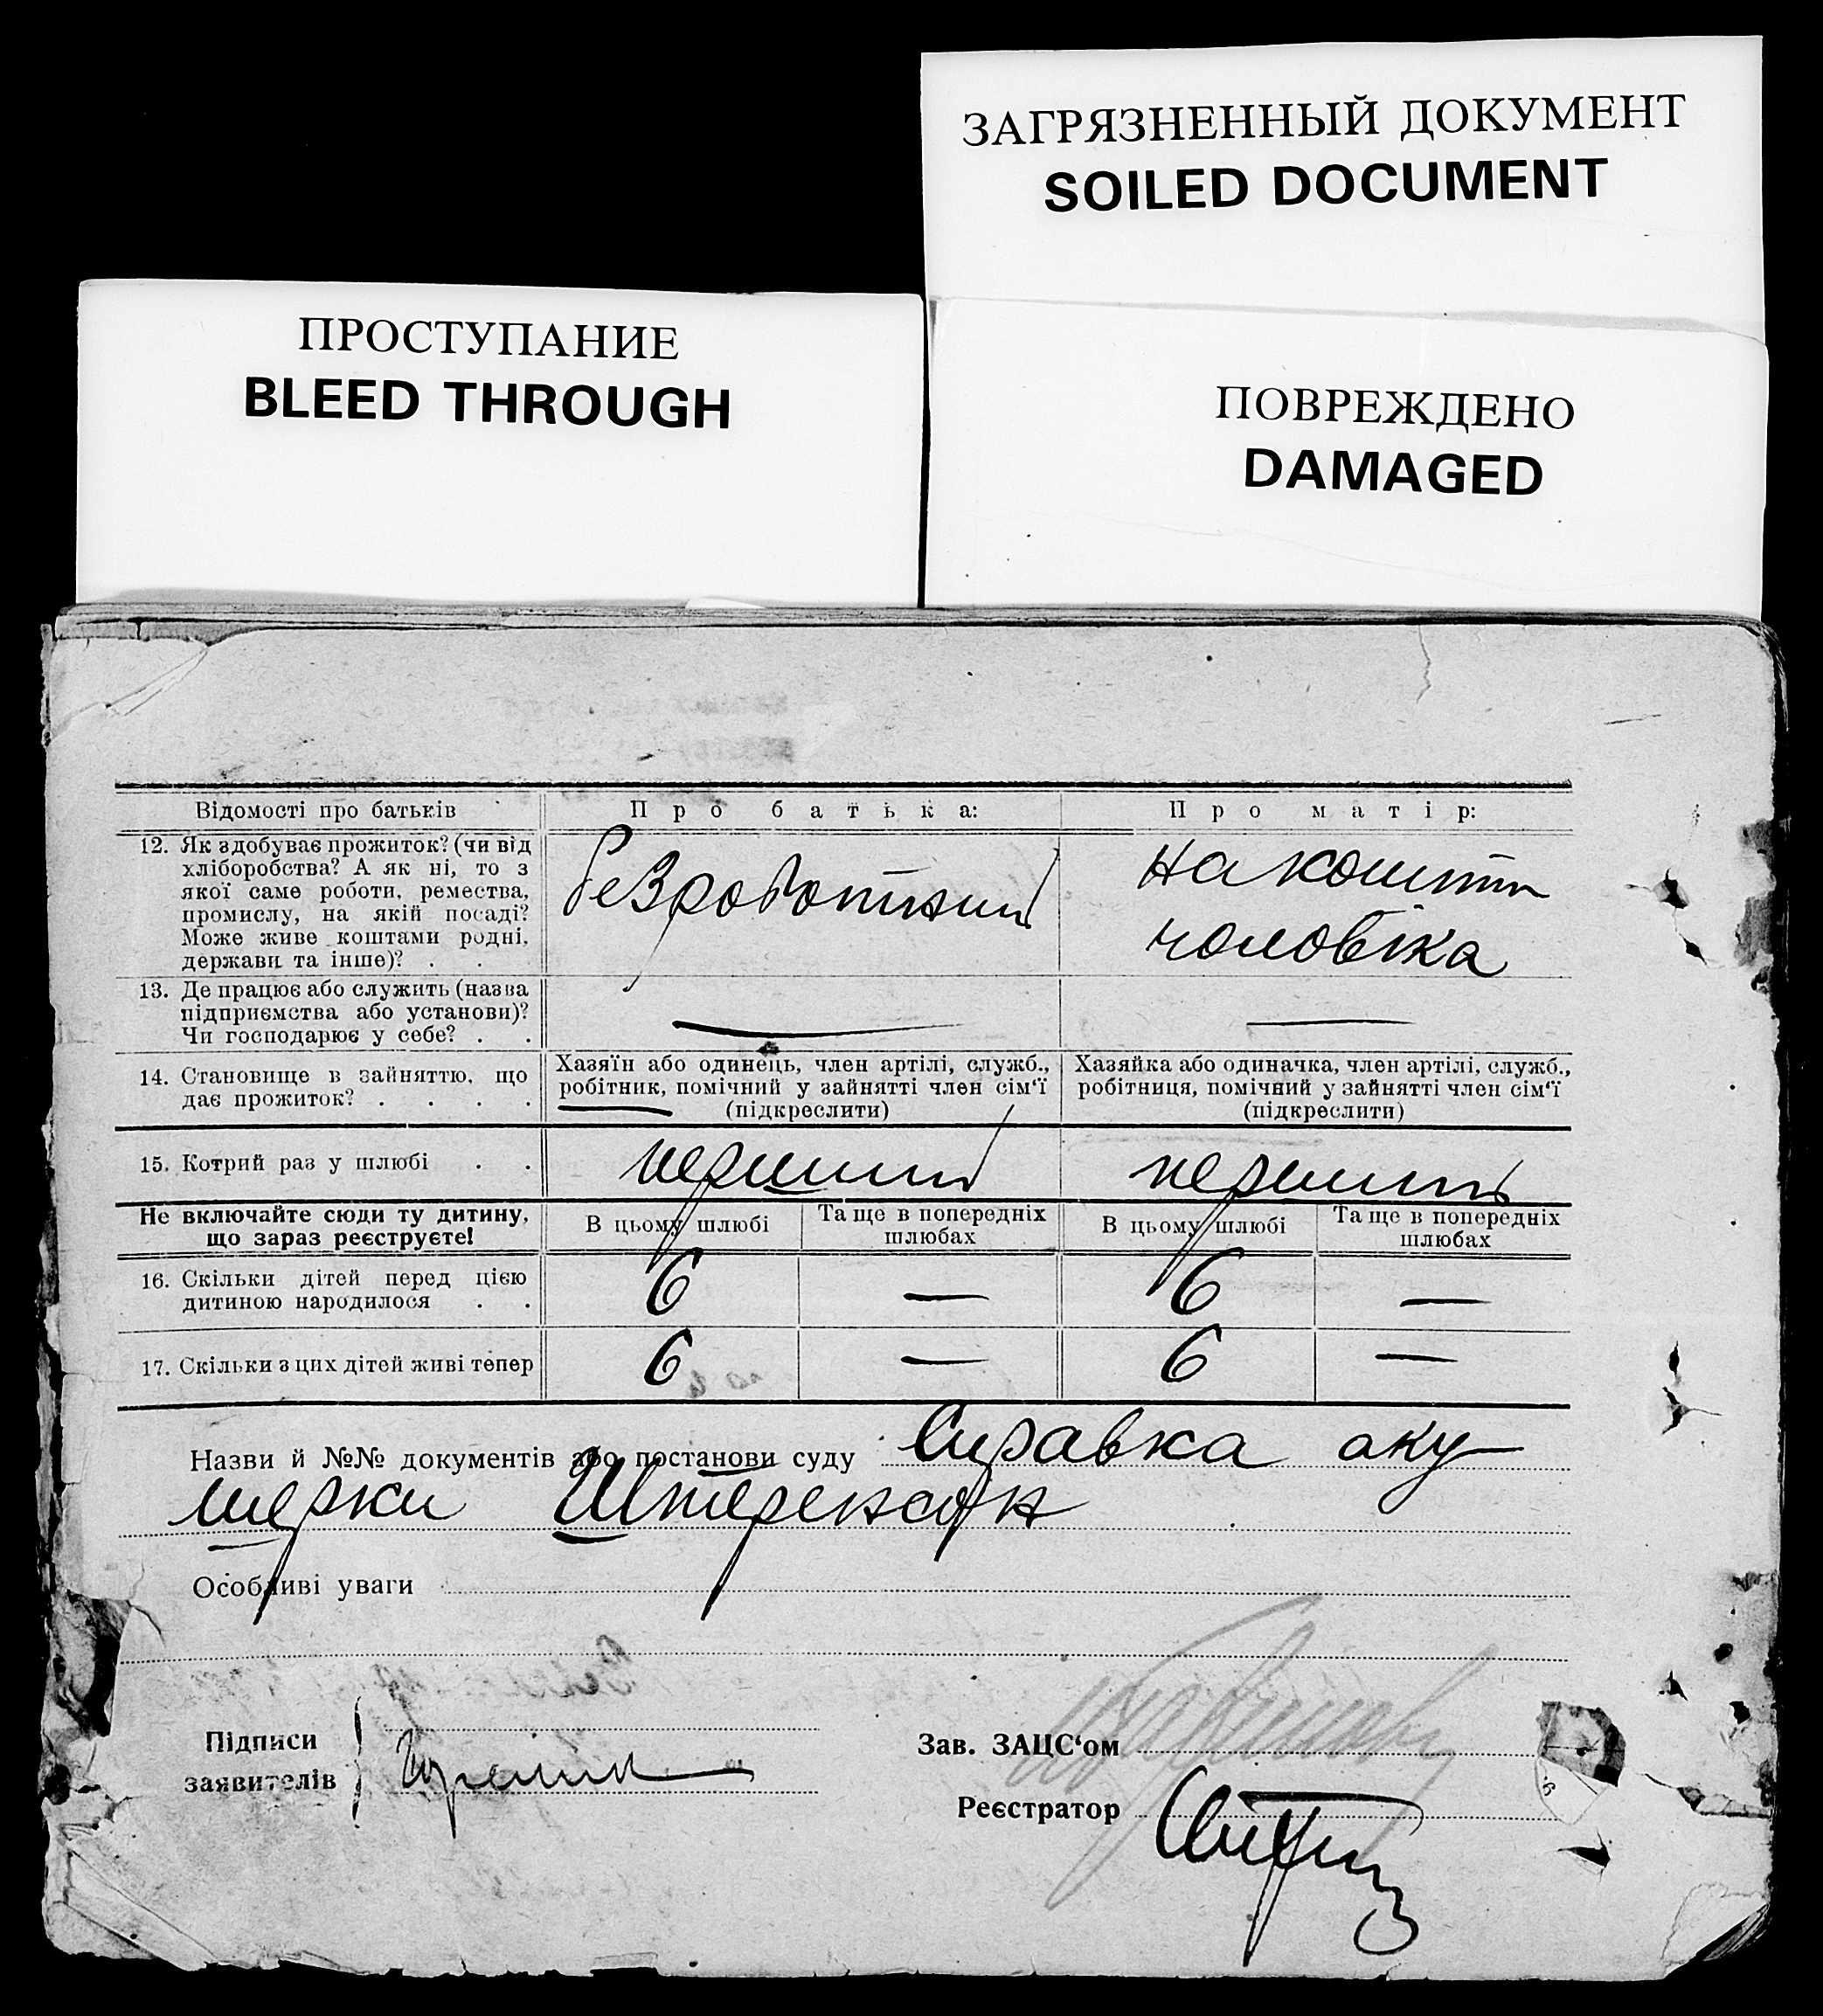 ЗАГРЯЗНЕННЫЙ ДОКУМЕНТ
SOILED DOCUMENT
ПРОСТУПАНИЕ
BLEED THROUGH
ПОВРЕЖДЕНО
DAMAGED
Відомості про батьків
Про батька:
Про матір:
12. Як здобуває прожиток? (чи від
хліборобства? А як ні, то з
якої саме роботи, ремества,
промислу, на якій посаді?
Може живе коштами родні,
держави та інше)? . .
безроботний
на кошти
чоловіка
13. Де працює або служить (назва
підприємства або установи)?
Чи господарює у себе? . .
—
—
14. Становище в зайняттю, що
дає прожиток? . . . .
Хазяїн або одинець, член артілі, служб.,
робітник, помічний у зайнятті член сім‘ї
(підкреслити)
Хазяйка або одиначка, член артілі, служб.,
робітниця, помічний у зайнятті член сім‘ї
(підкреслити)
15. Котрий раз у шлюбі . .
перший
перший
Не включайте сюди ту дитину,
що зараз реєструєте!
В цьому шлюбі
Та ще в попередніх
шлюбах
В цьому шлюбі
Та ще в попередніх
шлюбах
16. Скільки дітей перед цією
дитиною народилося . .
6 — 6 —
17. Скільки з цих дітей живі тепер
6 — 6 —
Назви й №№ документів або постанови суду Справка аку
шерки
Особливі уваги
Підписи
заявителів
Зав. ЗАЦС‘ом
Реєстратор